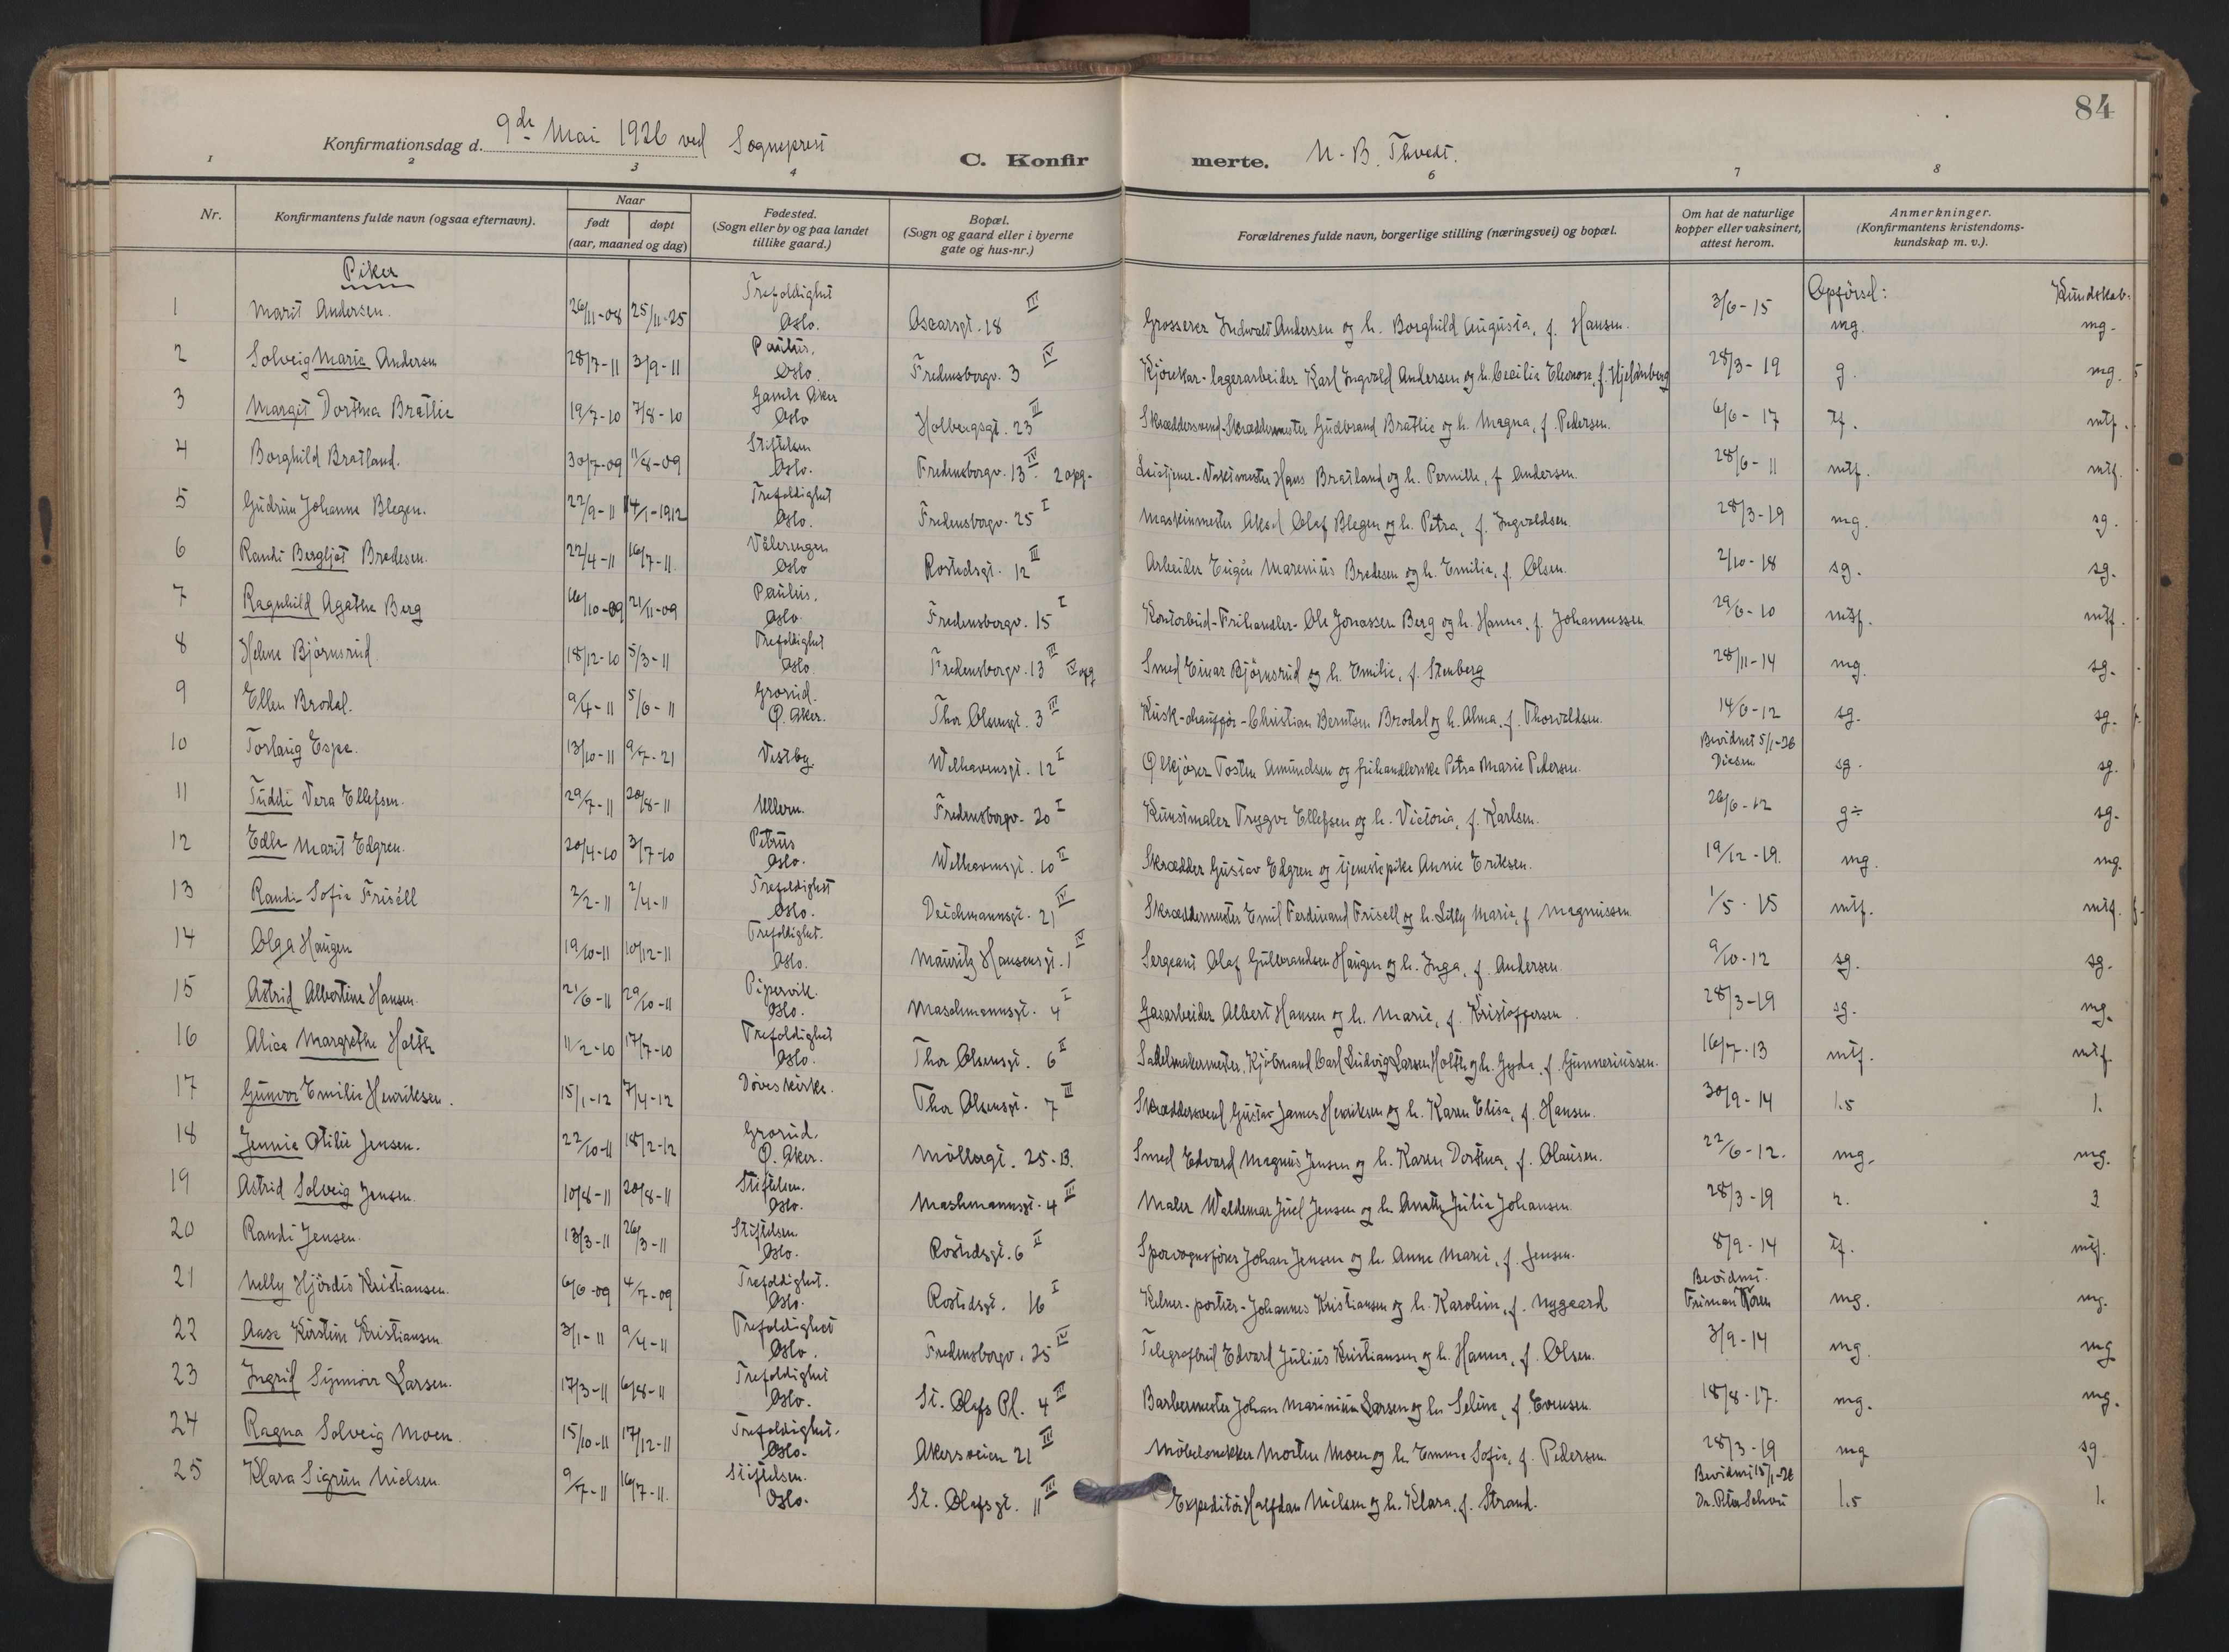 84
Konfirmationsdag d. 9de Mai 1926 ved Sogneprest C. Konfirmerte. N. B. Thvedt.
1 2 3 4 6 7 8
Nr. | Konfirmantens fulde navn (ogsaa efternavn). | Naar født | døpt (aar, maaned og dag) | Fødested. (Sogn eller by og paa landet tillike gaard.) | Bopæl. (Sogn og gaard eller i byerne gate og hus-nr.) | Forældrenes fulde navn, borgerlige stilling (næringsvei) og bopæl. | Om hat de naturlige kopper eller vaksinert, attest herom. | Anmerkninger. (Konfirmantens kristendomskundskap m. v.).
Piker Opførsel: Kundskab.
1 Marit Andersen. 26/11-08 25/11-25 Trefoldighet Oslo. Oscarsgt. 18 III Grosserer Andersen og h. Borghild Augusta, f. Hansen. 3/6-15 mg. mg.
2 Solveig Marie Andersen 28/7-11 3/9-11 Paulus. Oslo. Fredensborgv. 3 IV Kjørekar-lagerarbeider Karl Ingvald Andersen og h. Cecilie Eleonore, f. Hjelmberg 28/3-19 g. mg.
3 Margit Dorthea Bratlie 19/7-10 7/8-10 Gamle Aker Oslo Holbergsgt. 23 III Skræddersvend-Skræddermester Gudbrand Bratlie og h. Magna, f. Pedersen. 6/6-17 tf. mtf.
4 Borghild Bratland. 30/7-09 11/8-09 Stiftelsen Oslo. Fredensborgv. 13 IV 2 opg. Vaktmester Hans Bratland og h. Pernille, f Andersen. 28/6-11 mtf. mtf.
5 Gudrun Johanne Blegen. 22/9-11 14/1-1912 Trefoldighet Oslo. Fredensborgv. 25 I Maskinmester Aksel Olaf Blegen og h. Petra, f. Ingvaldsen. 28/3-19 mg. sg.
6 Randi Bergljot Bredesen. 22/4-11 16/7-11. Vålerengen Oslo Rostedsgt. 12 III Arbeider Eugen Marenius Bredesen og h. Emilie, f. Olsen. 2/10-18 sg. sg.
7 Ragnhild Agathe Berg 16/10-09 21/11-09 Paulus. Oslo. Fredensborgv. 15 I Kontorbud-Frihandler-Ole Jonassen Berg og h. Hanna, f. Johannessen 29/6-10 mtf. mtf.
8 Helene Bjørnsrud. 18/12-10 5/3-11 Trefoldighet Oslo. Fredensborgv. 13 III IV opg Smed Einar Bjørnsrud og h. Emilie, f. Stenberg 28/11-14 mg. sg.
9 Ellen Brodal. 9/4-11 5/6-11 Grorud. Ø. Aker. Thor Olsensgt. 3 III Kusk-chauffør-Christian Berntsen Brodal og h. Alma, f. Thorvaldsen. 14/6-12 sg. sg.
10 Torlaug Espe. 13/10-11 9/7-21 Vestby. Welhavensgt. 12 I Ølkjører Tosten Amundsen og frihandlerske Petra Marie Pedersen. Bevidnet 5/1-26 Diesen sg. sg.
11 Tuddi Vera Ellefsen. 29/7-11 20/8-11 Ullern. Fredensborgv. 20 I Kunstmaler Trygve Ellefsen og h. Victoria, f. Karlsen. 26/6-12 g÷ sg.
12 Edle Marit Edgren. 20/4-10 3/7-10 Petrus Oslo. Welhavensgt. 10 II Skrædder Gustav Edgren og tjenestepike Annie Eriksen. 19/12-19. mg. mg.
13 Randi Sofie Frisell 2/2-11 2/4-11 Trefoldighet Oslo. Deichmannsgt. 21 IV Skræddermester Emil Ferdinand Frisell og h. Lilly Marie, f Magnussen. 1/5-15 mtf. mtf.
14 Olga Haugen 19/10-11 10/12-11 Trefoldighet. Oslo. Mauritz Hansensgt. 1 IV Sergeant Olaf Gulbrandsen Haugen og h. Inga, f. Andersen. 9/10-12 sg. sg.
15 Astrid Albertine Hansen. 21/6-11 29/10-11 Pipervik. Oslo. Maschmannsgt. 4 I Gasarbeider Albert Hansen og h. Marie, f. Kristoffersen. 28/3-19 sg. mg.
16 Alice Margrethe Holth 11/2-10 17/7-10 Trefoldighet Oslo. Thor Olsensgt. 6 I Sadelmakermester, Kjøbmand Carl Ludvig Larsen Holth og h. Gyda, f. Gunneriussen. 16/7-13 mtf. mtf.
17 Gunvor Emilie Henriksen. 15/1-12 7/4-12 Døves kirke. Thor Olsensgt. 7 III Skræddersvend Gustav James Henriksen og h. Karen Elise, f. Hansen. 30/9-14 1.5 1.
18 Jennie Otilie Jensen. 22/10-11 18/2-12 Grorud. Ø. Aker. Møllergt. 25. B. Smed Edvard Magnus Jensen og h. Karen Dorthea, f. Olausen. 22/6-12. mg. mg.
19 Astrid Solveig Jensen. 10/8-11 20/8-11 Stiftelsen. Oslo. Mashmannsgt. 4 III Maler Waldemar Juel Jensen og h. Anette Julie Johansen. 28/3-19 2. 3
20 Randi Jensen. 13/3-11 26/3-11 Stiftelsen. Oslo. Rostedsgt. 6 II Sporvognsfører Johan Jensen og h. Anne Marie, f. Jensen. 8/9-14 tf. mtf.
21 Nelly Hjördis Kristiansen. 6/6-09 4/7-09 Trefoldighet. Oslo. Rostedsgt. 16 I Kelner-portier-Johannes Kristiansen og h. Karoline, f. Nygaard Bevidnet. Friman Koren mg. mg.
22 Aase Kirstine Kristiansen 3/1-11 9/4-11 Trefoldighet Oslo. Fredensborgv. 25 IV Telegrafbud Edvard Julius Kristiansen og h. Hanna, f. Olsen. 3/9-14 mg. mg
23 Ingrid Synnöve Larsen. 17/3-11 6/8-11 Trefoldighet Oslo. St. Olafs Pl. 4 III Barbermester Johan Larsen og h. Seline, f. Evensen. 18/8-17. mg. mg.
24 Ragna Solveig Moen. 15/10-11 17/12-11 Trefoldighet. Oslo. Akersveien 21 III Møbelsnekker Morten Moen og h. Emma Sofie, f. Pedersen 28/3-19 mg sg.
25 Klara Sigrun Nielsen. 9/7-11 16/7-11. Stiftelsen. Oslo. St. Olafsgt. 11 III Expeditør Halfdan Nielsen og h. Klara, f. Strand. Bevidnet 15/1-26 Dr. Peter Schou 1.5 1.